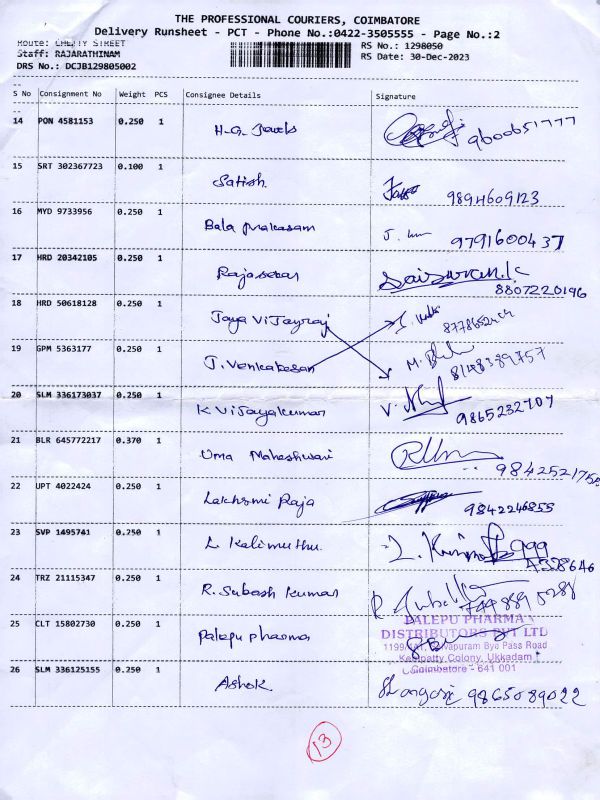 THE PROFESSIONAL COURIERS, COIMBATORE
Delivery Runsheet - PCT - Phone No.:0422-3505555 - Page No.:2
Route: CHETTY STREET
Staff: RAJARATHINAM
DRS No.: DCJB129805002
RS No.: 1298050
RS Date: 30-Dec-2023
S No Consignment No Weight PCS Consignee Details Signature
14 PON 4581153 0.250 1 H.G. 9600651777
15 SRT 302367723 0.100 1 Satish 9894609123
16 MYD 9733956 0.250 1 Bala Prakasam J. 9791600437
17 HRD 20342105 0.250 1 Rajasekar Saisuran.K
8807220196
18 HRD 50618128 0.250 1 Jaya Vijayraj
19 GPM 5363177 0.250 1 J. Venkatesan M.
8148389757
20 SLM 336173037 0.250 1 K Vijayakumar V.
9865232707
21 BLR 645772217 0.370 1 Uma Maheshwari
22 UPT 4022424 0.250 1 Lakshmi Raja
9842246855
23 SVP 1495741 0.250 1 L. Kalimuthu.
24 TRZ 21115347 0.250 1 R. Subash Kumar
25 CLT 15802730 0.250 1 Palepu Pharma
PALEPU PHARMA
DISTRIBUTORS PVT LTD
Bye Pass Road
Colony, Ukkadam
Coimbatore - 641 001
26 SLM 336125155 0.250 1 Ashok 9865089022
13